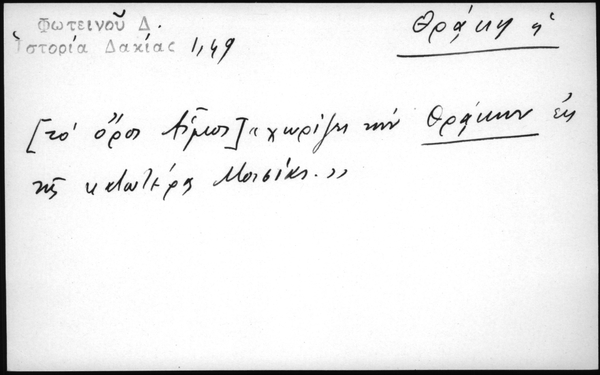 Φωτεινοῦ Δ.
Ἱστορία Δακίας 1,49
Θράκη ἡ
[τὸ ὄρος Αἷμος] «χωρίζει τὴν Θράκην ἐκ
τῆς κατωτέρας Μοισίας.»